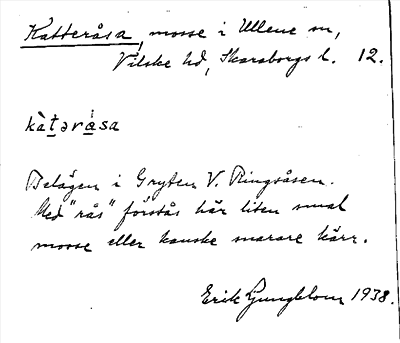 Katteråsa, mosse i Ullene sn,
Vilske hd, Skaraborgs l. 12.
kàt̲ərå̲sa
Belägen i Gryten V. Ringsåsen.
Med "rås" förstås här liten smal
mosse eller kanske snarare kärr.
Erik Ljungblom 1938.